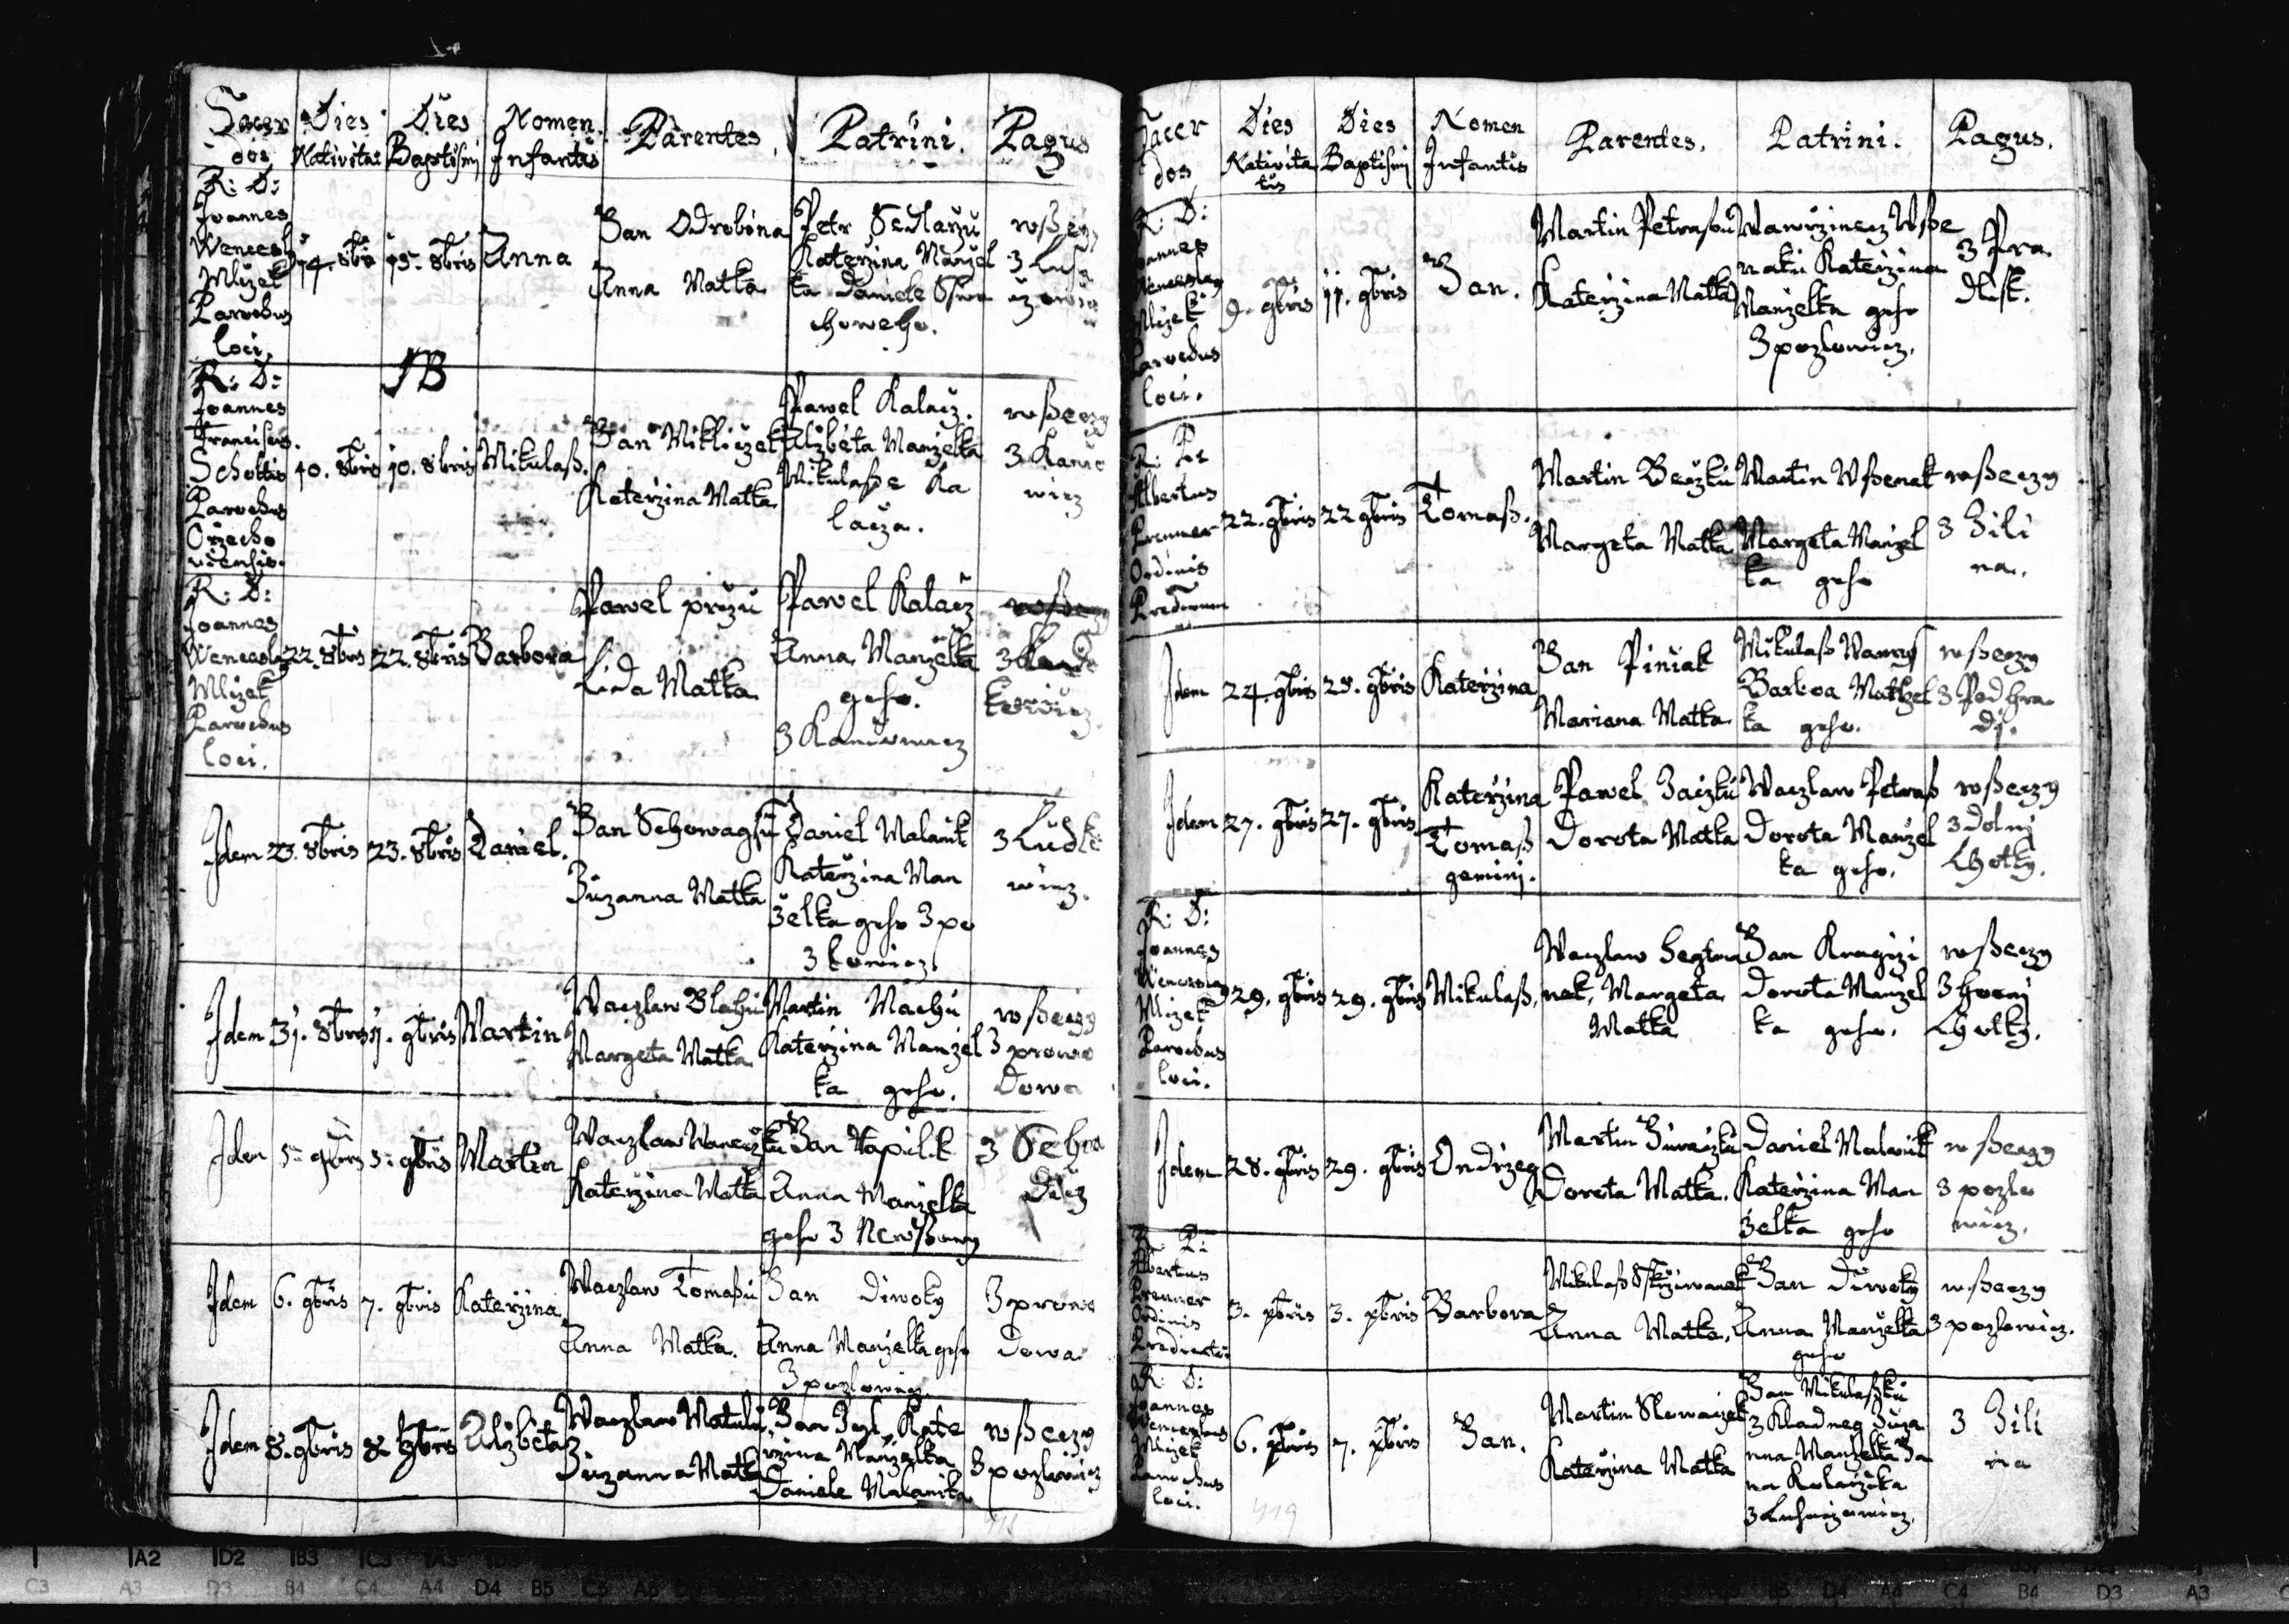 Sacerdos Dies Nativitatis Dies Baptismj Nomen Infantis Parentes. Patrini. Pagus
R: D: Joannes Wenceslaus Mlizek Parochus loci.
14. 8bris 15. 8bris Anna
Jan Odrobina
Anna Matka
Petr Sedlarzu
Katerzina Manzel
ka Daniele
choweho.
wßeczy
JB
R: D:
Joannes
Franciscus
Scholtis
Parochus
Orzecho
viensis.
10. 8bris 10. 8bris Mikulaß.
Jan Mikliczek
Katerzina Matka
Pawel Kalacz.
Alzbeta Manzelka
Mikulaße Ka
lacza.
wßeczy
3 Kanio
wicz
R: D:
Joannes
Wenceslaus
Mlizek
Parochus
loci.
22. 8bris 22. 8bris Barbora
Pawel
Lida Matka
Pawel Kalacz
Anna Manzelka
geho.
3 Kaniowicz
Idem 23. 8bris 23. 8bris Daniel.
Jan
Zuzanna Matka
Daniel Malanik
Katerzina Man
zelka geho 3 po
zlowicz
3 Ludko
wicz.
Idem 31. 8bris 1. 9bris Martin
Waczlaw Blahu
Margeta Matka
Martin Machu
Katerzina Manzel
ka geho.
wßeczy
3 prowo
dowa
Idem 5. 9bris 5. 9bris Martin
Waczlaw
Katerzina Matka
Jan Kapilik
Anna Manzelka
geho 3
3 Sehra
dicz
Idem 6. 9bris 7. 9bris Katerzina
Waczlaw Tomaßu
Anna Matka.
Jan Diwoky
Anna Manzelka geho
3 pozlowicz
3 prowo
dowa
Idem 8. 9bris 8. 9bris Alzbeta
Waczlaw Matulu
Zuzanna Matka
Jan Kate
rzina Manzelka
Daniele Malanika
wßeczy
3 pozlowicz
Sacerdos Dies Nativitatis Dies Baptismj Nomen Infantis Parentes. Patrini. Pagus.
R: D:
Joannes
Wenceslaus
Mlizek
Parochus
loci.
9. 9bris 11. 9bris Jan.
Martin Petraßu
Katerzina Matka
Wawrzinecz Wße
natu Katerzina
Manzelka geho
3 pozlowicz.
3 Hra
disk.
R: P:
Albertus
Prenner
Ordinis
22. 9bris 22 9bris Tomaß.
Martin Beczku
Margeta Matka
Martin Wßenat
Margeta Manzel
ka geho
wßeczy
3 Zili
na.
Idem 24. 9bris 25. 9bris Katerzina
Jan Piniak
Mariana Matka
Mikulaß
ka geho.
wßeczy
3 Podhra
dj.
Idem 27. 9bris 27. 9bris Katerzina
Tomaß
geminj.
Pawel Zaizku
Dorota Matka
Waczlaw Petraß
Dorota Manzel
ka geho.
wßeczy
3 Dolnj
Lhotky.
R: D:
Joannes
Wenceslaus
Mlizek
Parochus
loci.
29. 9bris 29. 9bris Mikulaß,
Waczlaw Hegtma
nek, Margeta
Matka
Jan
Dorota Manzel
ka geho.
wßeczy
3 hornj
Lhotky.
Idem 28. 9bris 29. 9bris Ondrzeg
Martin
Dorota Matka.
Daniel Malanik
Katerzina Man
zelka geho
wßeczy
3 pozlo
wicz.
R: P:
Albertus
Prenner
Ordinis
3. xbris 3. xbris Barbora
Mikulaß
Anna Matka,
Jan Diwoky
Anna Manzelka
geho
wßeczy
3 pozlowicz.
R: D:
Joannes
Wenceslaus
Mlizek
Parochus
loci.
6. xbris 7. xbris Jan.
Martin Slowaczek
Katerzina Matka
Jan Mikulaßku
3 Kladneg Zuza
nna Manzelka Ja
na
3 Zili
na
419